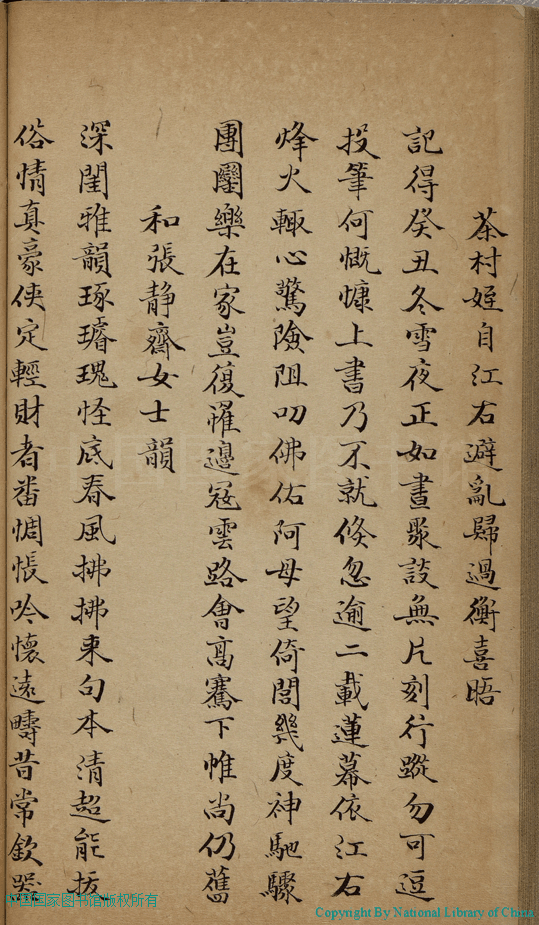 茶村姪自江右避亂歸過衡喜晤
記得癸丑冬雪夜正如晝聚談無片刻行蹤勿可逗
投筆何慨慷上書乃不就倐忽逾二載蓮幕依江右
烽火輙心驚險阻叨佛佑阿母望倚閭幾度神馳驟
團圞樂在家豈復罹邊寇雲路會高騫下帷尚仍舊
和張静齋女士韻
深閨雅韻琢璿瑰怪底春風拂拂來句本清超能拔
俗情真豪俠定輕財者番惆悵吟懷遠疇昔常欽
中国国家图书馆版权所有
Copyright By National Library of China